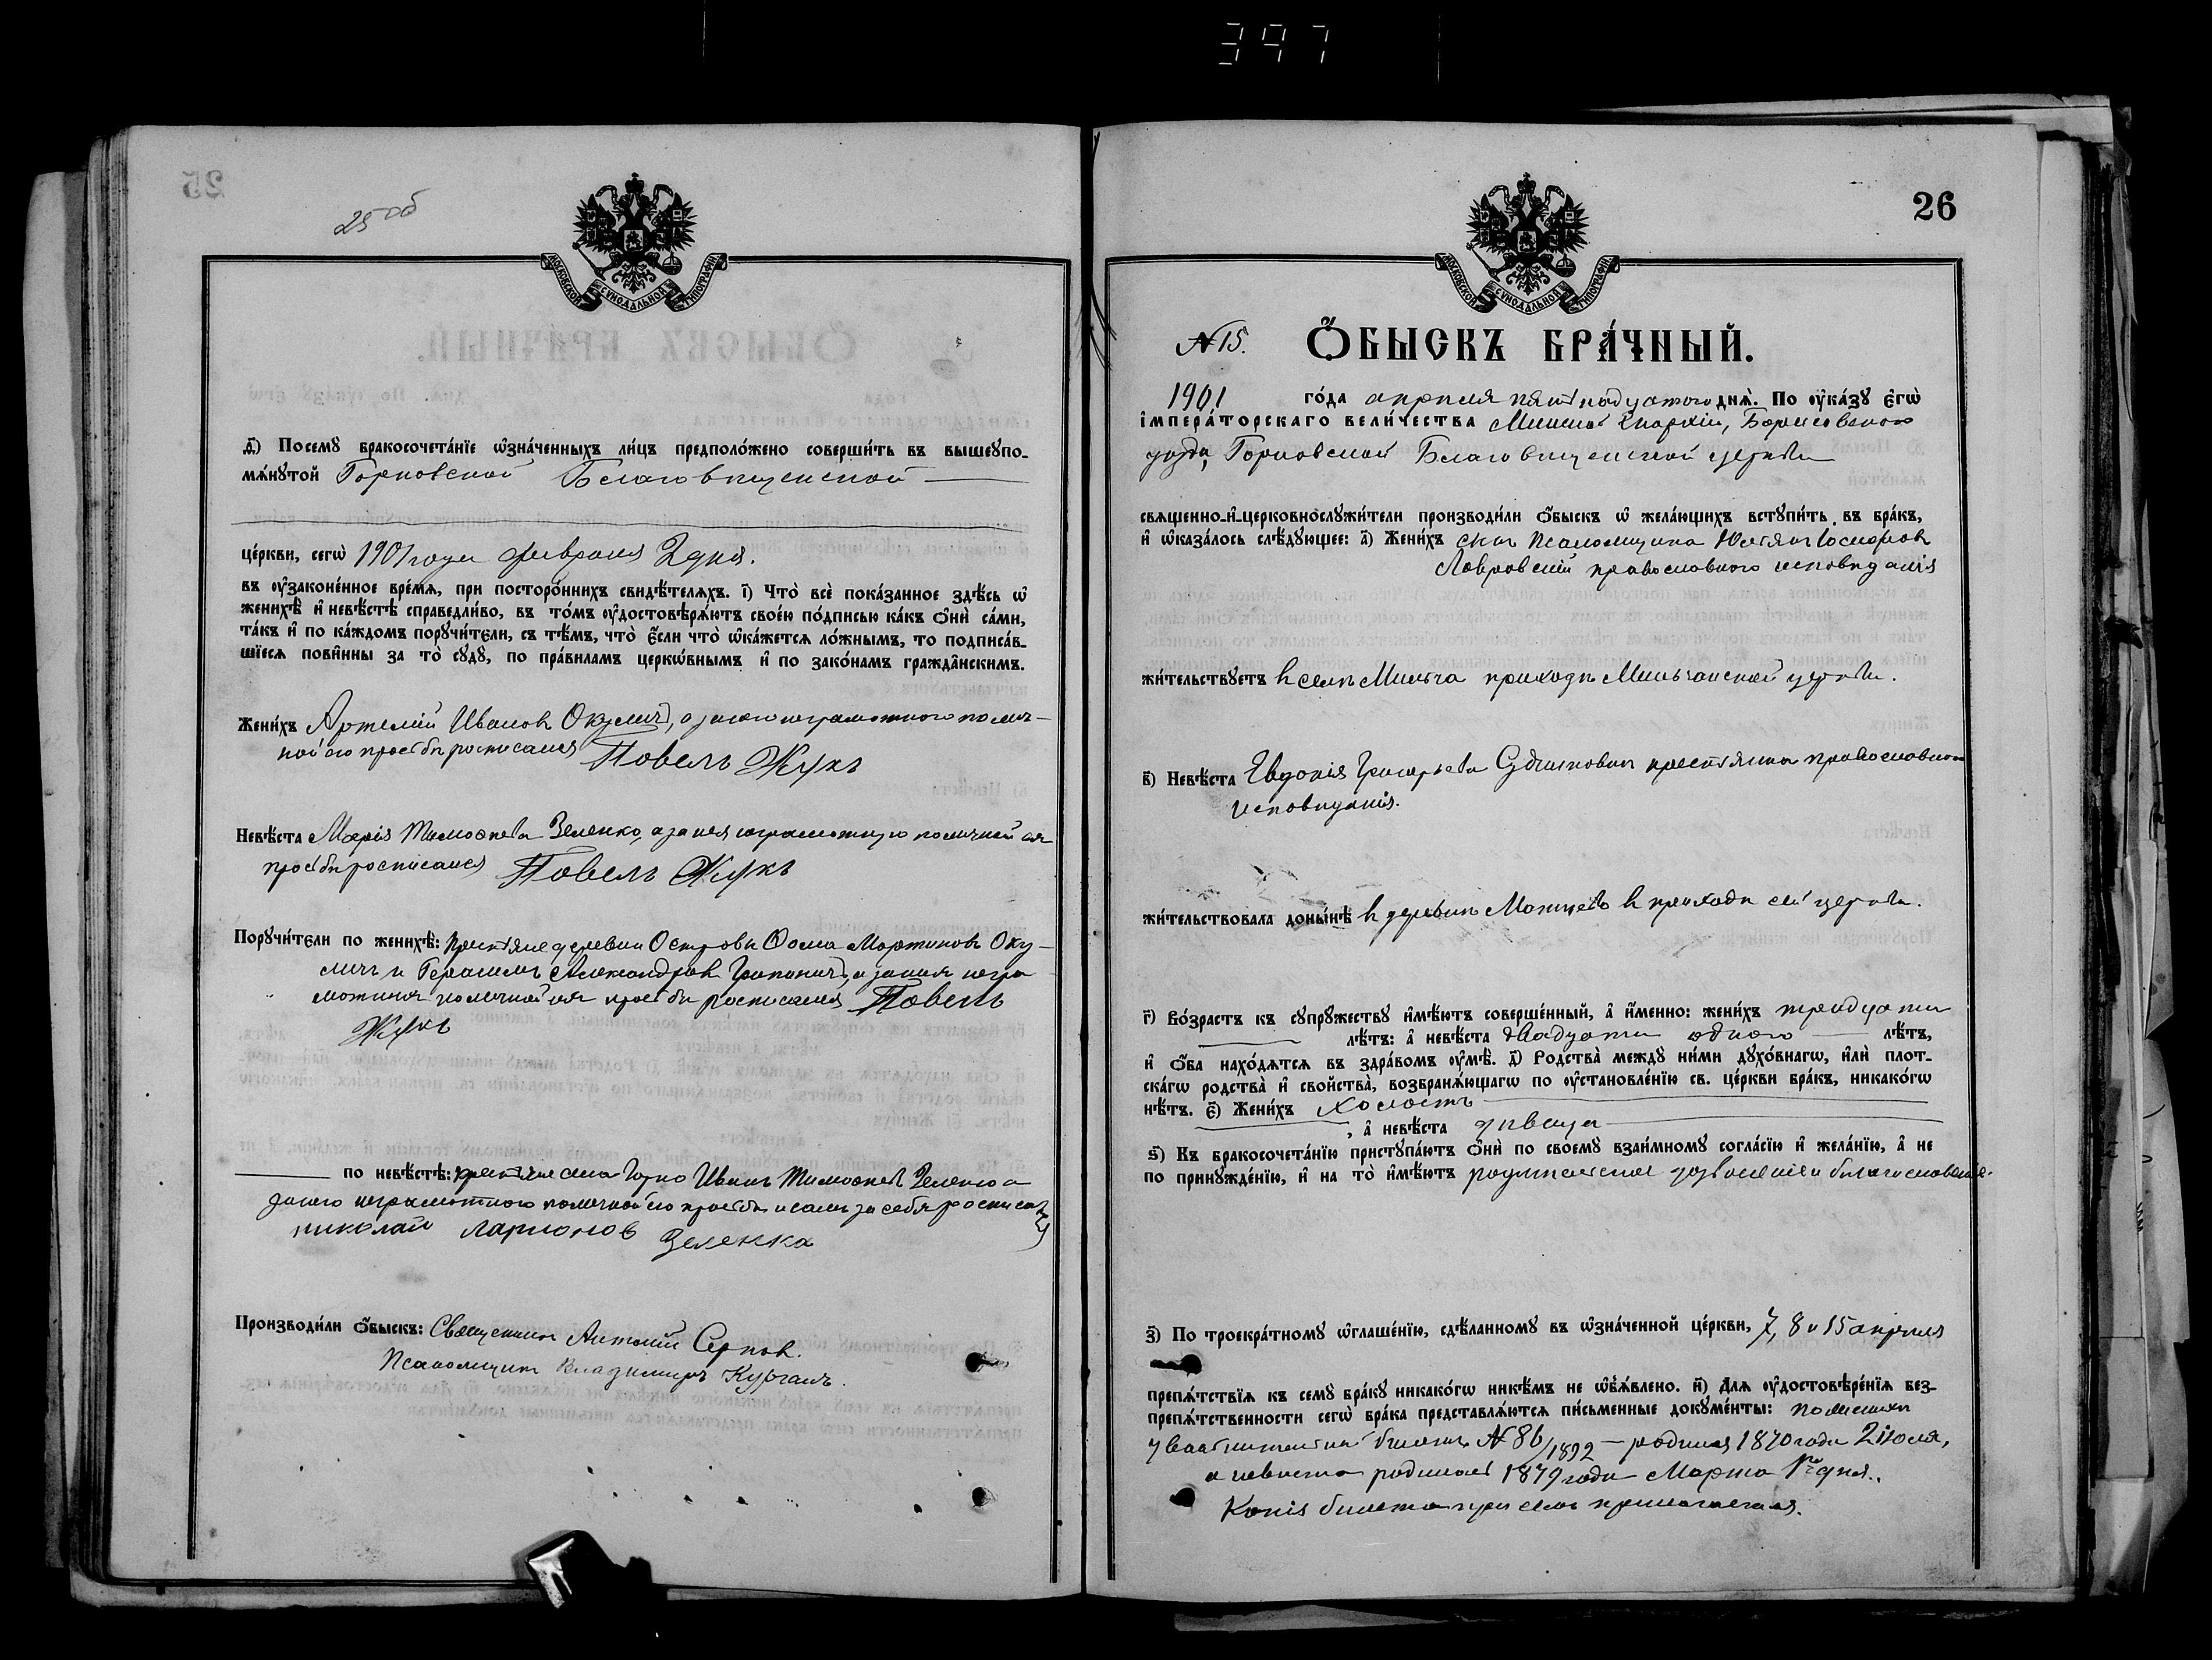 397
25
25 об
МОСКОВСКОЙ СѴНОДАЛЬНОЙ ТИПОГРАФІИ
д҃) Посемꙋ бракосочета́нїе ѡ҆зна́ченныхъ ли́цъ предполо́жено соверши́ть въ вышеꙋпо-
мѧ́нꙋтой Горновской Благовѣщенской
це́ркви, сегѡ̀ 1901 года февраля 2 дня.
въ ᲂу҆законе́нное вре́мѧ, при посторо́ннихъ свидѣ́телѧхъ. і҃) Что̀ всѐ пока́занное здѣ́сь ѡ҆
женихѣ̀ и҆ невѣ́стѣ справедли́во, въ то́мъ ᲂу҆достовѣрѧ́ютъ свое́ю по́дписью ка́къ ѻ҆нѝ са́ми,
та́къ и҆ по ка́ждомъ порꙋчи́тели, съ тѣ́мъ, что̀ є҆́сли что̀ ѡ҆ка́жетсѧ ло́жнымъ, то подписа́в-
шїесѧ пови́нны за то̀ сꙋдꙋ̀, по пра́виламъ церкѡ́внымъ и҆ по зако́намъ гражда̑нскимъ.
Жени́хъ Артемій Ивановъ Окуличъ, а за него неграмотнаго по лич-
ной его просьбѣ росписался Повелъ Жукъ
Невѣ́ста Марія Тимоѳеева Зеленко, а за нея неграмотную по личной ея
просьбѣ росписался Повелъ Жукъ
Порꙋчи́тели по женихѣ̀: крестьяне деревни Острова Ѳома Мартиновъ Оку-
личъ и Герасимъ Александровъ а за нихъ негра
мотныхъ по личной ихъ просьбѣ росписался Повелъ
Жукъ
по невѣ́стѣ: крестьяне села Горно Иванъ Тимоѳеевъ Зеленко а
за него неграмотнаго по личной его просьбѣ и самъ за себя росписался
николай ларионов Зеленка
Производи́ли ѻ҆́быскъ: Священникъ Антоній Серновъ.
Псаломщикъ Владимиръ Курганъ.
26
МОСКОВСКОЙ СѴНОДАЛЬНОЙ ТИПОГРАФІИ
№ 15. Ѻ҆́БЫСКЪ БРА́ЧНЫЙ.
1901 го́да апреля пятнадцатого днѧ̀. По ᲂу҆ка́зꙋ є҆гѡ̀
і҆мпера́торскаго вели́чества Минской Епархіи, Борисовского
уезда, Горновской Благовѣщенской церкви
свѧщенно-и҆-церковнослꙋжи́тели производи́ли ѻ҆́быскъ ѡ҆ жела́ющихъ встꙋпи́ть въ бра́къ,
и҆ ѡ҆каза́лось слѣ́дꙋющее: а҃) Жени́хъ сынъ псаломщика Іосифовъ
Лавровскій православного исповѣданія
жи́тельствꙋетъ въ селѣ Мильча приходѣ Мильчанской церкви.
в҃) Невѣ́ста Евдокія Григорьева крестьянка православного
исповѣданія.
жи́тельствовала доны́нѣ въ деревнѣ въ приходѣ сей церкви.
г҃) Во́зрастъ къ сꙋпрꙋ́жествꙋ и҆мѣ́ютъ соверше́нный, а҆ и҆́менно: жени́хъ тридцати
лѣ́тъ: а҆ невѣ́ста двадцати одного лѣ́тъ,
и҆ ѻ҆́ба нахо́дѧтсѧ въ здра́вомъ ᲂу҆мѣ̀. д҃) Родства̀ междꙋ̀ ни́ми дꙋхо́внагѡ, и҆лѝ плот-
ска́гѡ родства̀ и҆ сво́йства̀, возбранѧ́ющагѡ по ᲂу҆становле́нїю св. це́ркви бра́къ, никако́гѡ
нѣ́тъ. є҃) Жени́хъ холостъ
, а҆ невѣ́ста дѣвица
ѕ҃) Къ бракосочета́нїю пристꙋпа́ютъ ѻ҆нѝ по своемꙋ̀ взаи́мномꙋ согла́сїю и҆ жела́нїю, а҆ не
по принꙋжде́нїю, и҆ на то̀ и҆мѣ́ютъ родительское дозволеніе и благословеніе.
з҃) По троекра́тномꙋ ѡ҆глаше́нїю, сдѣ́ланномꙋ въ ѡ҆зна́ченной це́ркви, 7, 8 и 15 апреля
препѧ́тствїѧ къ семꙋ̀ бра́кꙋ никако́гѡ никѣ́мъ не ѡ҆б̾ѧ́влено. и҃) Длѧ ᲂу҆достовѣре́нїѧ без-
препѧ́тственности сегѡ̀ бра́ка представлѧ́ютсѧ пи́сьменные докꙋме́нты:
билетъ № 86/1892 — родился 1870 года 2 іюля,
а невеста родилась 1879 года Марта 1го дня.
Копія билета при семъ прилагается.